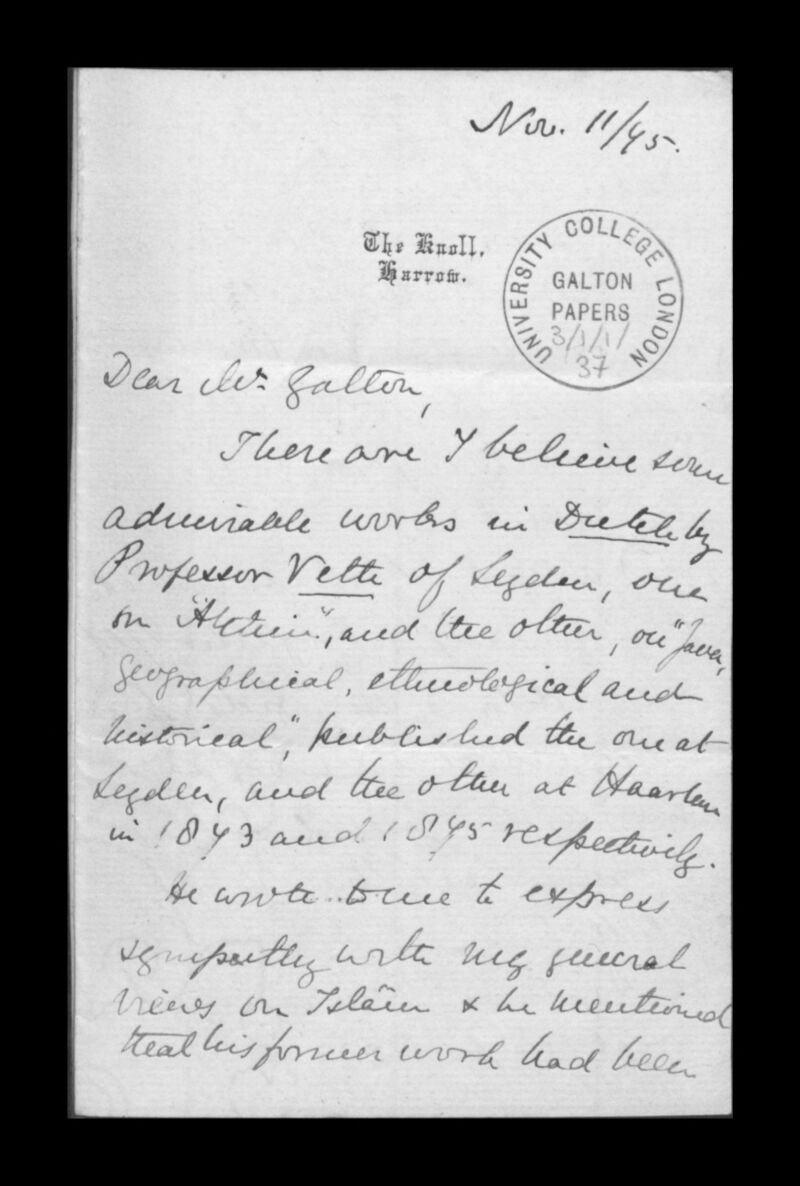 Nov. 11/75.
The Knoll,
Harrow.
UNIVERSITY COLLEGE LONDON
GALTON
PAPERS
3/1/1/
37
Dear Mr. Galton,
There are I believe some
admirable works in Dutch by
Professor Veth of Leyden, one
on "Atchin", and the other, on "Java,
geographical, ethnological and
historical", published the one at
Leyden, and the other at Haarlem
in 1873 and 1875 respectively.
He wrote to me to express
sympathy with my general
views on Islâm & he mentioned
that his former work had been